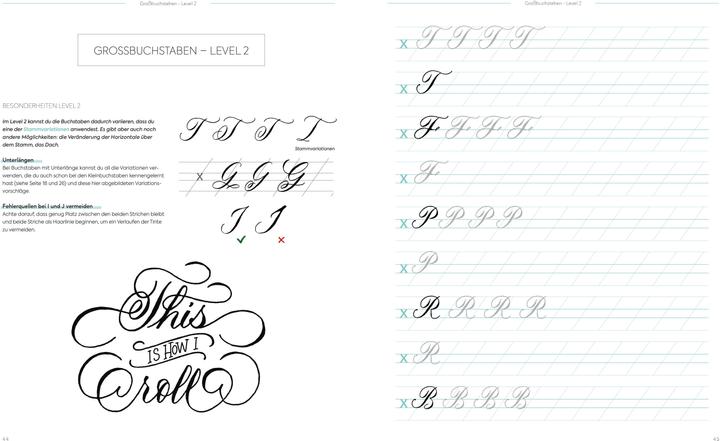 Großbuchstaben - Level 2
GROSSBUCHSTABEN – LEVEL 2
BESONDERHEITEN LEVEL 2
Im Level 2 kannst du die Buchstaben dadurch variieren, dass du
eine der Stammvariationen anwendest. Es gibt aber auch noch
andere Möglichkeiten: die Veränderung der Horizontale über
dem Stamm, das Dach.
Unterlängen
Bei Buchstaben mit Unterlänge kannst du all die Variationen ver-
wenden, die du auch schon bei den Kleinbuchstaben kennengelernt
hast (siehe Seite 18 und 26) und diese hier abgebildeten Variations-
vorschläge.
Fehlerquellen bei I und J vermeiden
Achte darauf, dass genug Platz zwischen den beiden Strichen bleibt
und beide Striche als Haarlinie beginnen, um ein Verlaufen der Tinte
zu vermeiden.
T T T I
Stammvariationen
x G G G
I I
This
IS HOW I
roll
44
Großbuchstaben - Level 2
x T T T T
x T
x F F F F
x F
x P P P P
x P
x R R R R
x R
x B B B B
45